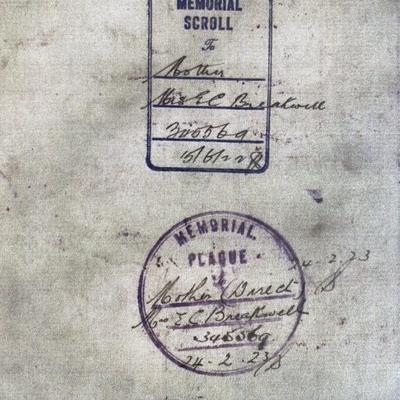 MEMORIAL
SCROLL
To
Mother
Mrs E C Breakwell
345569
15/6/22
MEMORIAL
PLAQUE
4.2.23
Mother (Direct)
Mrs E C Breakwell
345569
24-2-23